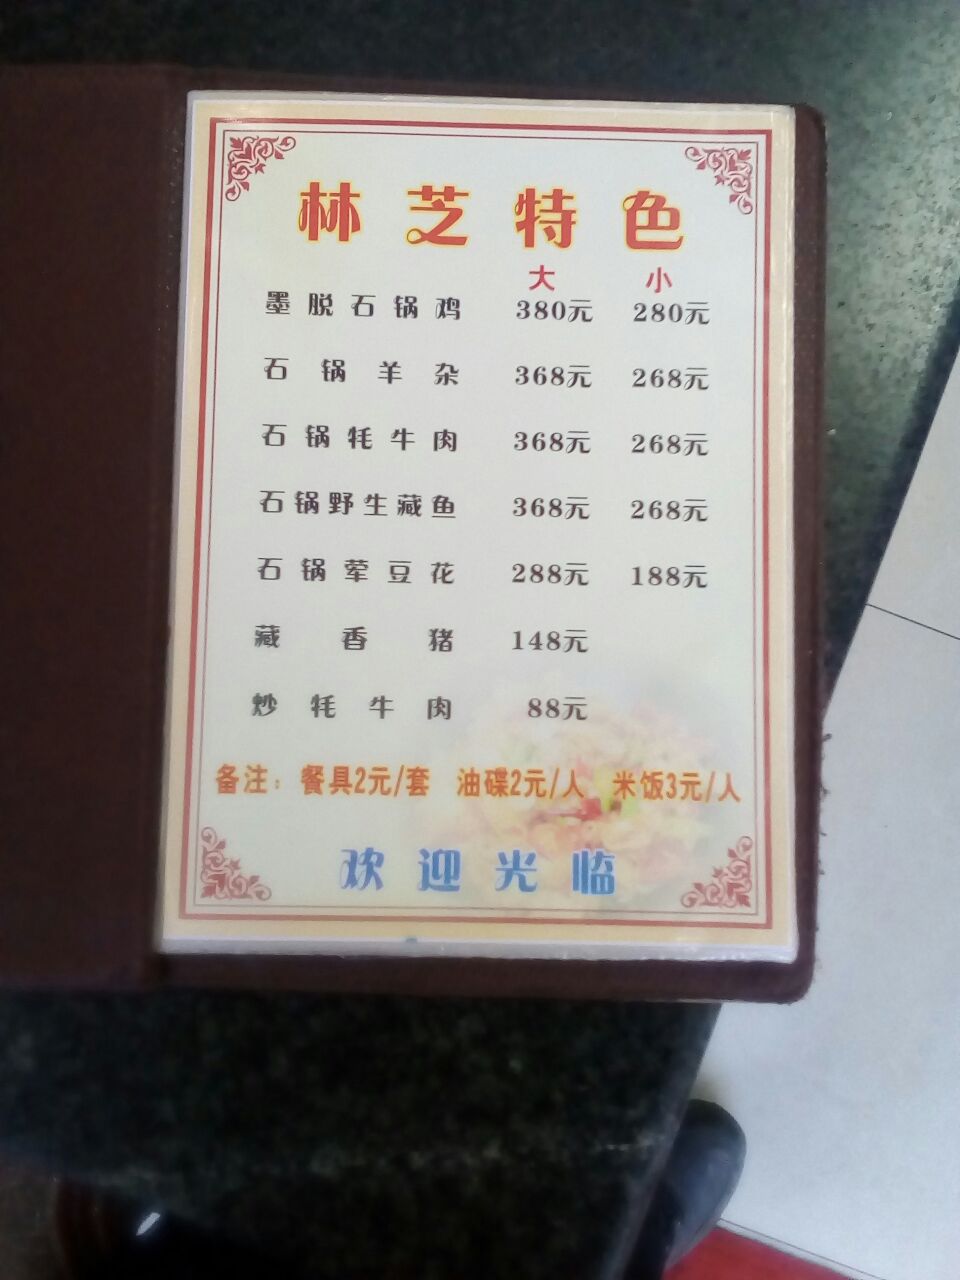 林芝特色
大 小
墨脱石锅鸡 380元 280元
石锅羊杂 368元 268元
石锅牦牛肉 368元 268元
石锅野生藏鱼 368元 268元
石锅荤豆花 288元 188元
藏香猪 148元
炒牦牛肉 88元
备注：餐具2元/套 油碟2元/人 米饭3元/人
欢迎光临